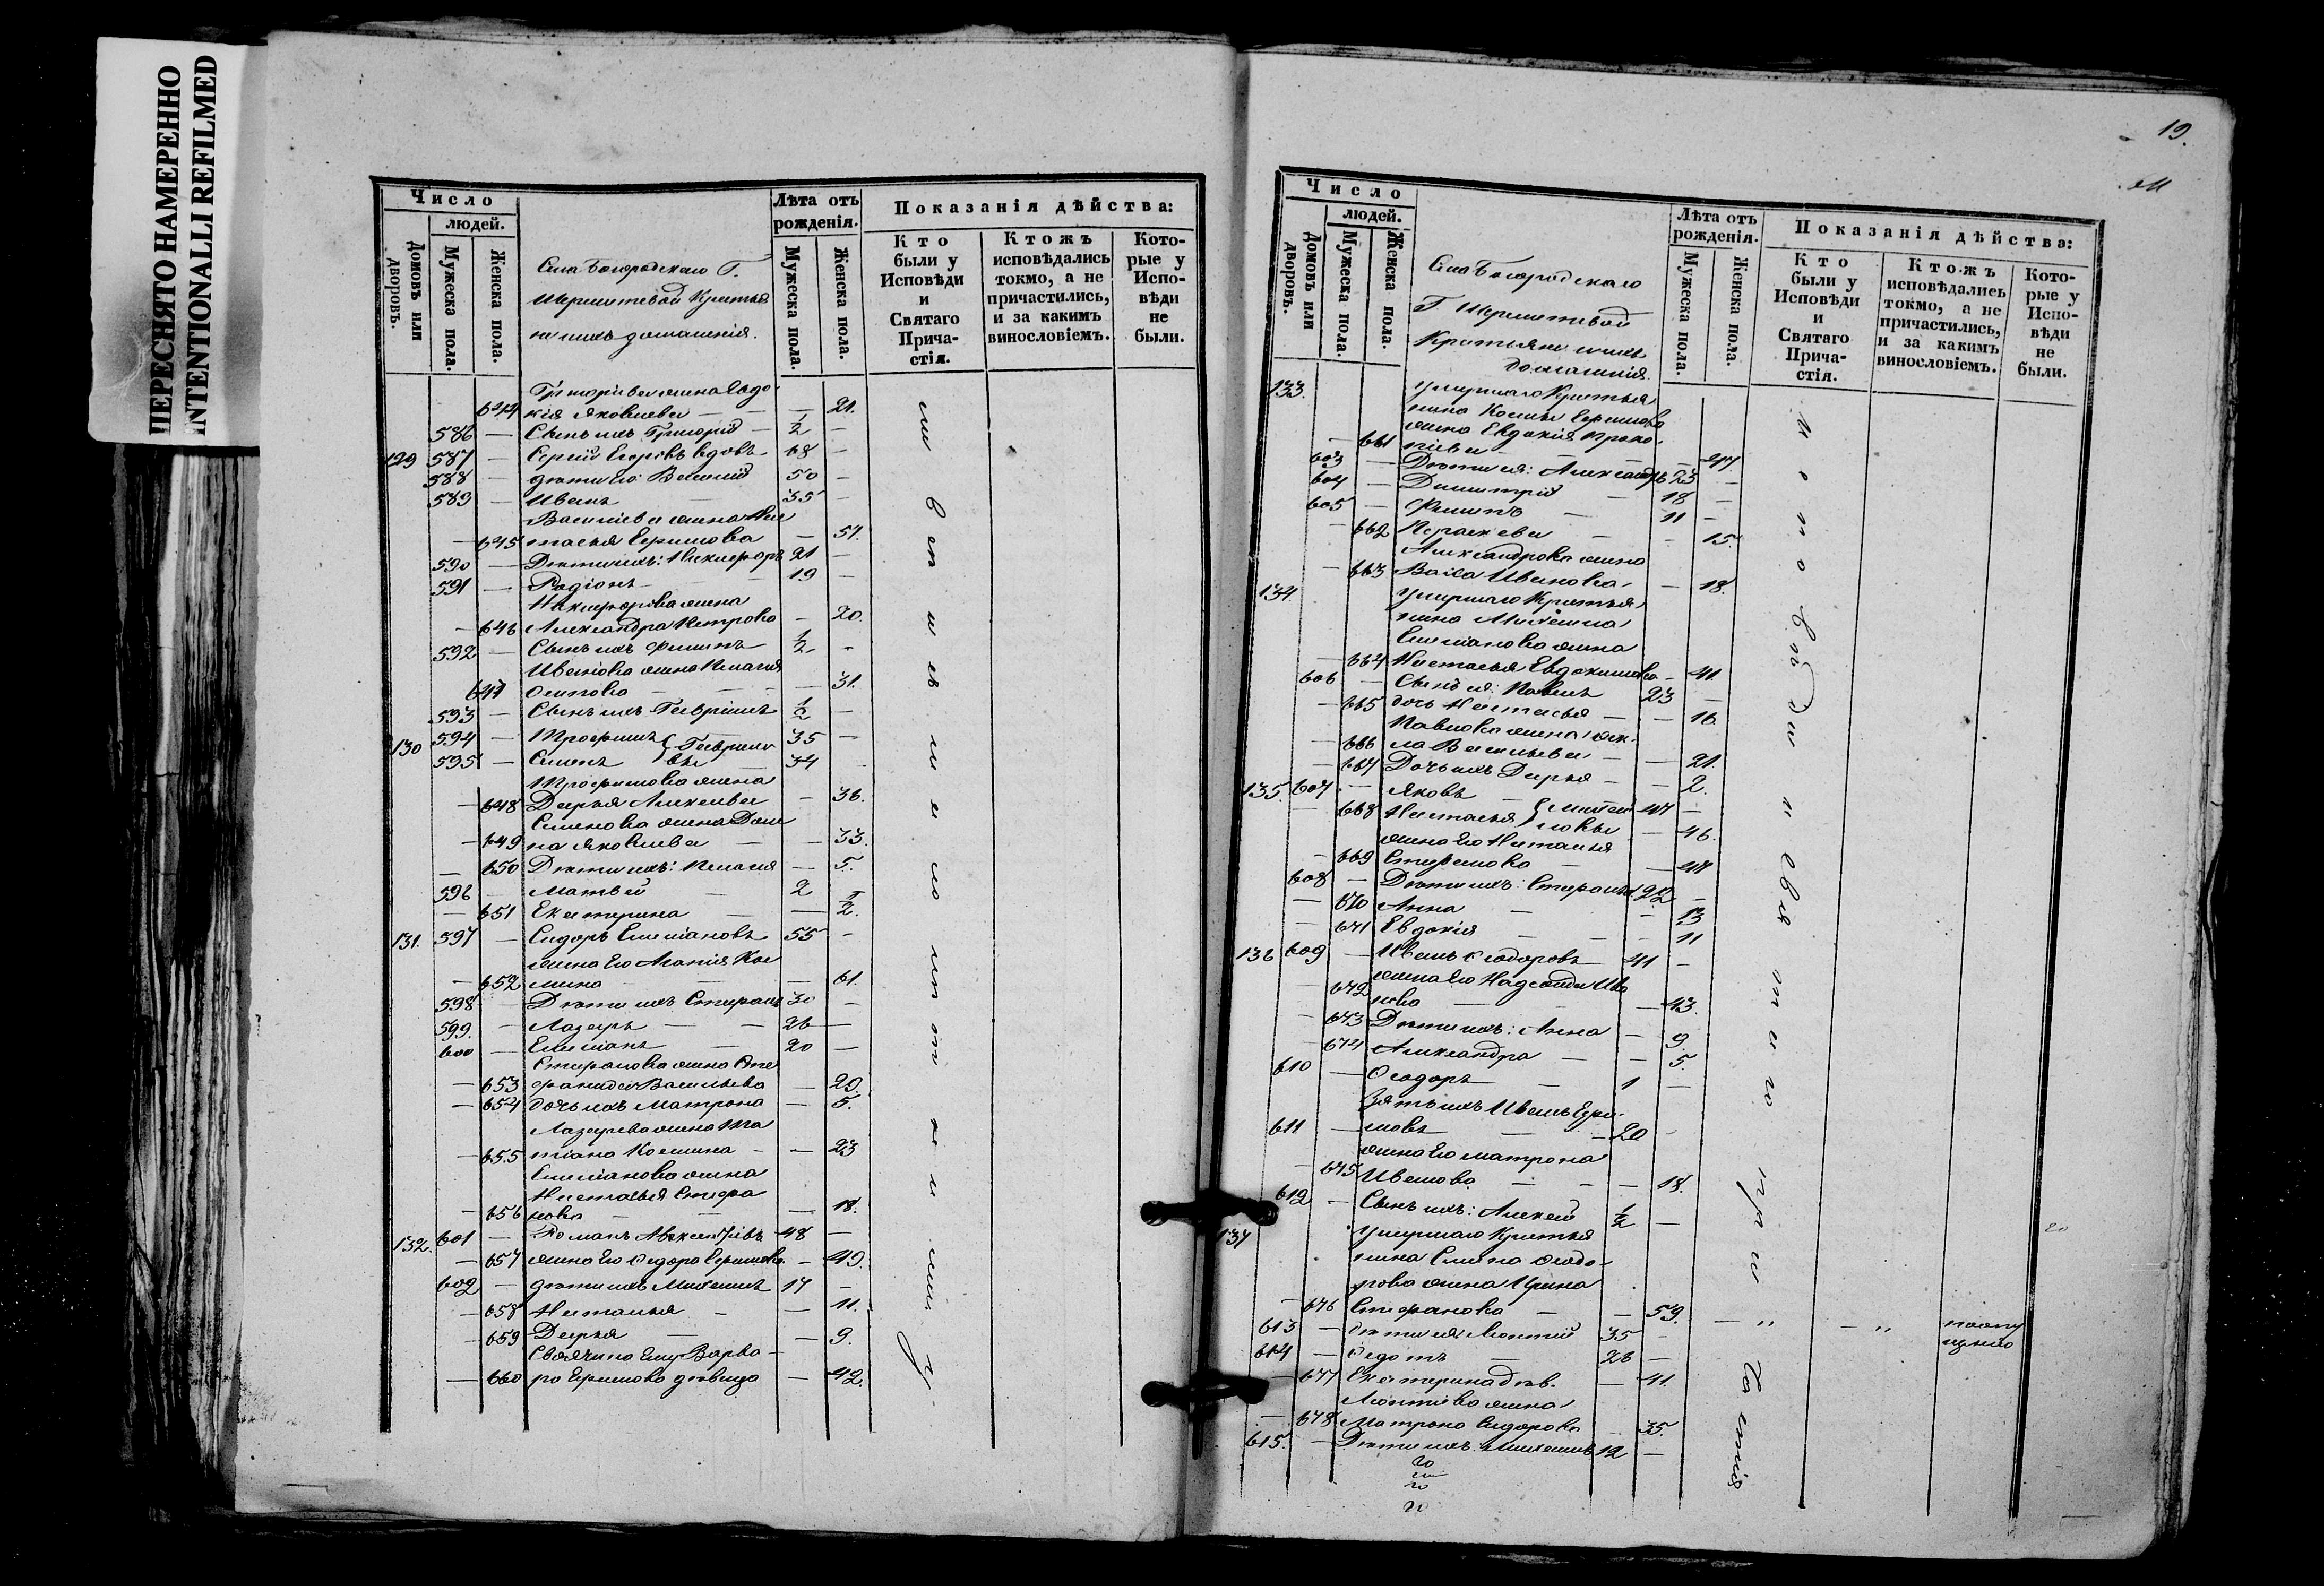 ПЕРЕСНЯТО НАМЕРЕННО
INTENTIONALLI REFILMED
Число
людей.
Домовъ или дворовъ.
Мужеска пола.
Женска пола.
Села Богородскаго Г.
Шереметевой Крестья
не и ихъ домашнія.
Лѣта отъ рожденія.
Мужеска пола.
Женска пола.
Показанія дѣйства:
Кто были у Исповѣди и Святаго Прича-стія.
Ктожъ исповѣдались токмо, а не причастились, и за какимъ винословіемъ.
Кото-рые у Испо-вѣди не были.
Григорьева жена Евдо
644 кія Яковлева — — 21.
586 — Сынъ ихъ Григорій — 1/2 —
129 587 — Сергей Егоровъ вдовъ 68 —
588 — дѣти его: Василій 50 —
589 — Иванъ 35 —
Васильева жена Нас
— 645 тасья Ефимова — 51.
590 — Дѣти ихъ: Никифоръ 21 —
591 — Родіонъ — 19 —
Никифорова жена
— 646 Александра Петрова — 20.
592 — Сынъ ихъ Филипъ 1/2 -
Иванова жена Пелагея
647 Осипова — — 31.
593 — Сынъ ихъ Гавріилъ 1/2 —
130 594 — Трофимъ } Гаврило 35 —
595 — Семенъ } вы 34
Трофимова жена
— 648 Дарья Алексеева — 36.
Семенова жена Дом
— 649 на Яковлева — — 33.
— 650 Дѣти ихъ: Пелагея — 5.
596 — Матвей — 2
— 651 Екатерина — — 1/2.
131. 597 — Сидоръ Емеліановъ 55 —
жена его Агапія Кос
— 652 мина — — 61.
598 — Дѣти ихъ Стефанъ 30 —
599. — Лазарь — 26 —
600 — Емеліанъ — 20 —
Стефанова жена Сте
— 653 фанида Васильева — 29.
— 654 дочь ихъ Матрона — 5.
Лазарева жена Та
— 655 тіана Космина — — 23
Емеліанова жена
Настасья Стефа
— 656 нова — — — 18.
132. 601 — Романъ Авксентіевъ 48 —
— 657 жена его Ѳедора Ефимова — 49.
602 — дѣти ихъ Михаилъ 17 —
— 658 Наталья — — 11.
— 659 Дарья — — 9.
Своячина ему Варва —
— 660 ра Ефимова дѣвица — 42.
19.
Число
людей.
Домовъ или дворовъ.
Мужеска пола.
Женска пола.
Села Богородскаго
Г Шереметевой
Крестьяне и ихъ
домашнія.
Лѣта отъ рожденія.
Мужеска пола.
Женска пола.
Показанія дѣйства:
Кто были у Исповѣди и Святаго Прича-стія.
Ктожъ исповѣдались токмо, а не причастились, и за какимъ винословіемъ.
Кото-рые у Испо-вѣди не были.
133. умершаго Крестья
нина Космы Ефимова
жена Евдокія Проко-
— 661 піева — — 47.
603 — Дѣти ея: Александръ 23 —
604 — Димитрій — 18 —
605 — Филипъ — 11 —
— 662 Параскева — — 15.
Александрова жена
— 663 Васса Иванова — 18.
134. умершаго Крестья
нина Михаила
Емеліанова жена
— 664 Настасья Евдокимова — 41
606 — Сынъ ея: Павелъ 23 —
— 665 дочь Настасья — — 16.
— 666 ла Васильева — — 21.
— 667 Дочь ихъ Дарья — — 2.
135. 607 — Яковъ — 47 —
— 668 Настасья — 46.
жена его Наталья
— 669 Стефанова —
608 — Дѣти ихъ: Стефанъ 22 —
— 670 Анна — — 13
— 671 Евдокія — — 11
136 609 — Иванъ Ѳеодоровъ 41 —
жена его Надежда Ива
— 672 нова — — 43.
— 673 Дѣти ихъ: Анна — 9.
— 674 Александра — — 5.
610 — Ѳеодоръ — 1 —
Зять ихъ Иванъ Ефи-
611 — мовъ — — 20 —
жена его Матрона
— 675 Иванова — — 18.
612 — Сынъ ихъ: Алексей 1/2 —
137 умершаго Крестья
нина Семена Ѳеодо-
рова жена Ирина
— 676 Стефанова — — 59. — „ — „
613 — дѣти ея: Леонтій 35 —
614 — Ѳедотъ — 26 —
— 677 Екатерина дѣв. — 41.
Леонтіева жена
— 678 Матрона Сидорова 35.
615. — Дѣти ихъ: Михаилъ 12 —